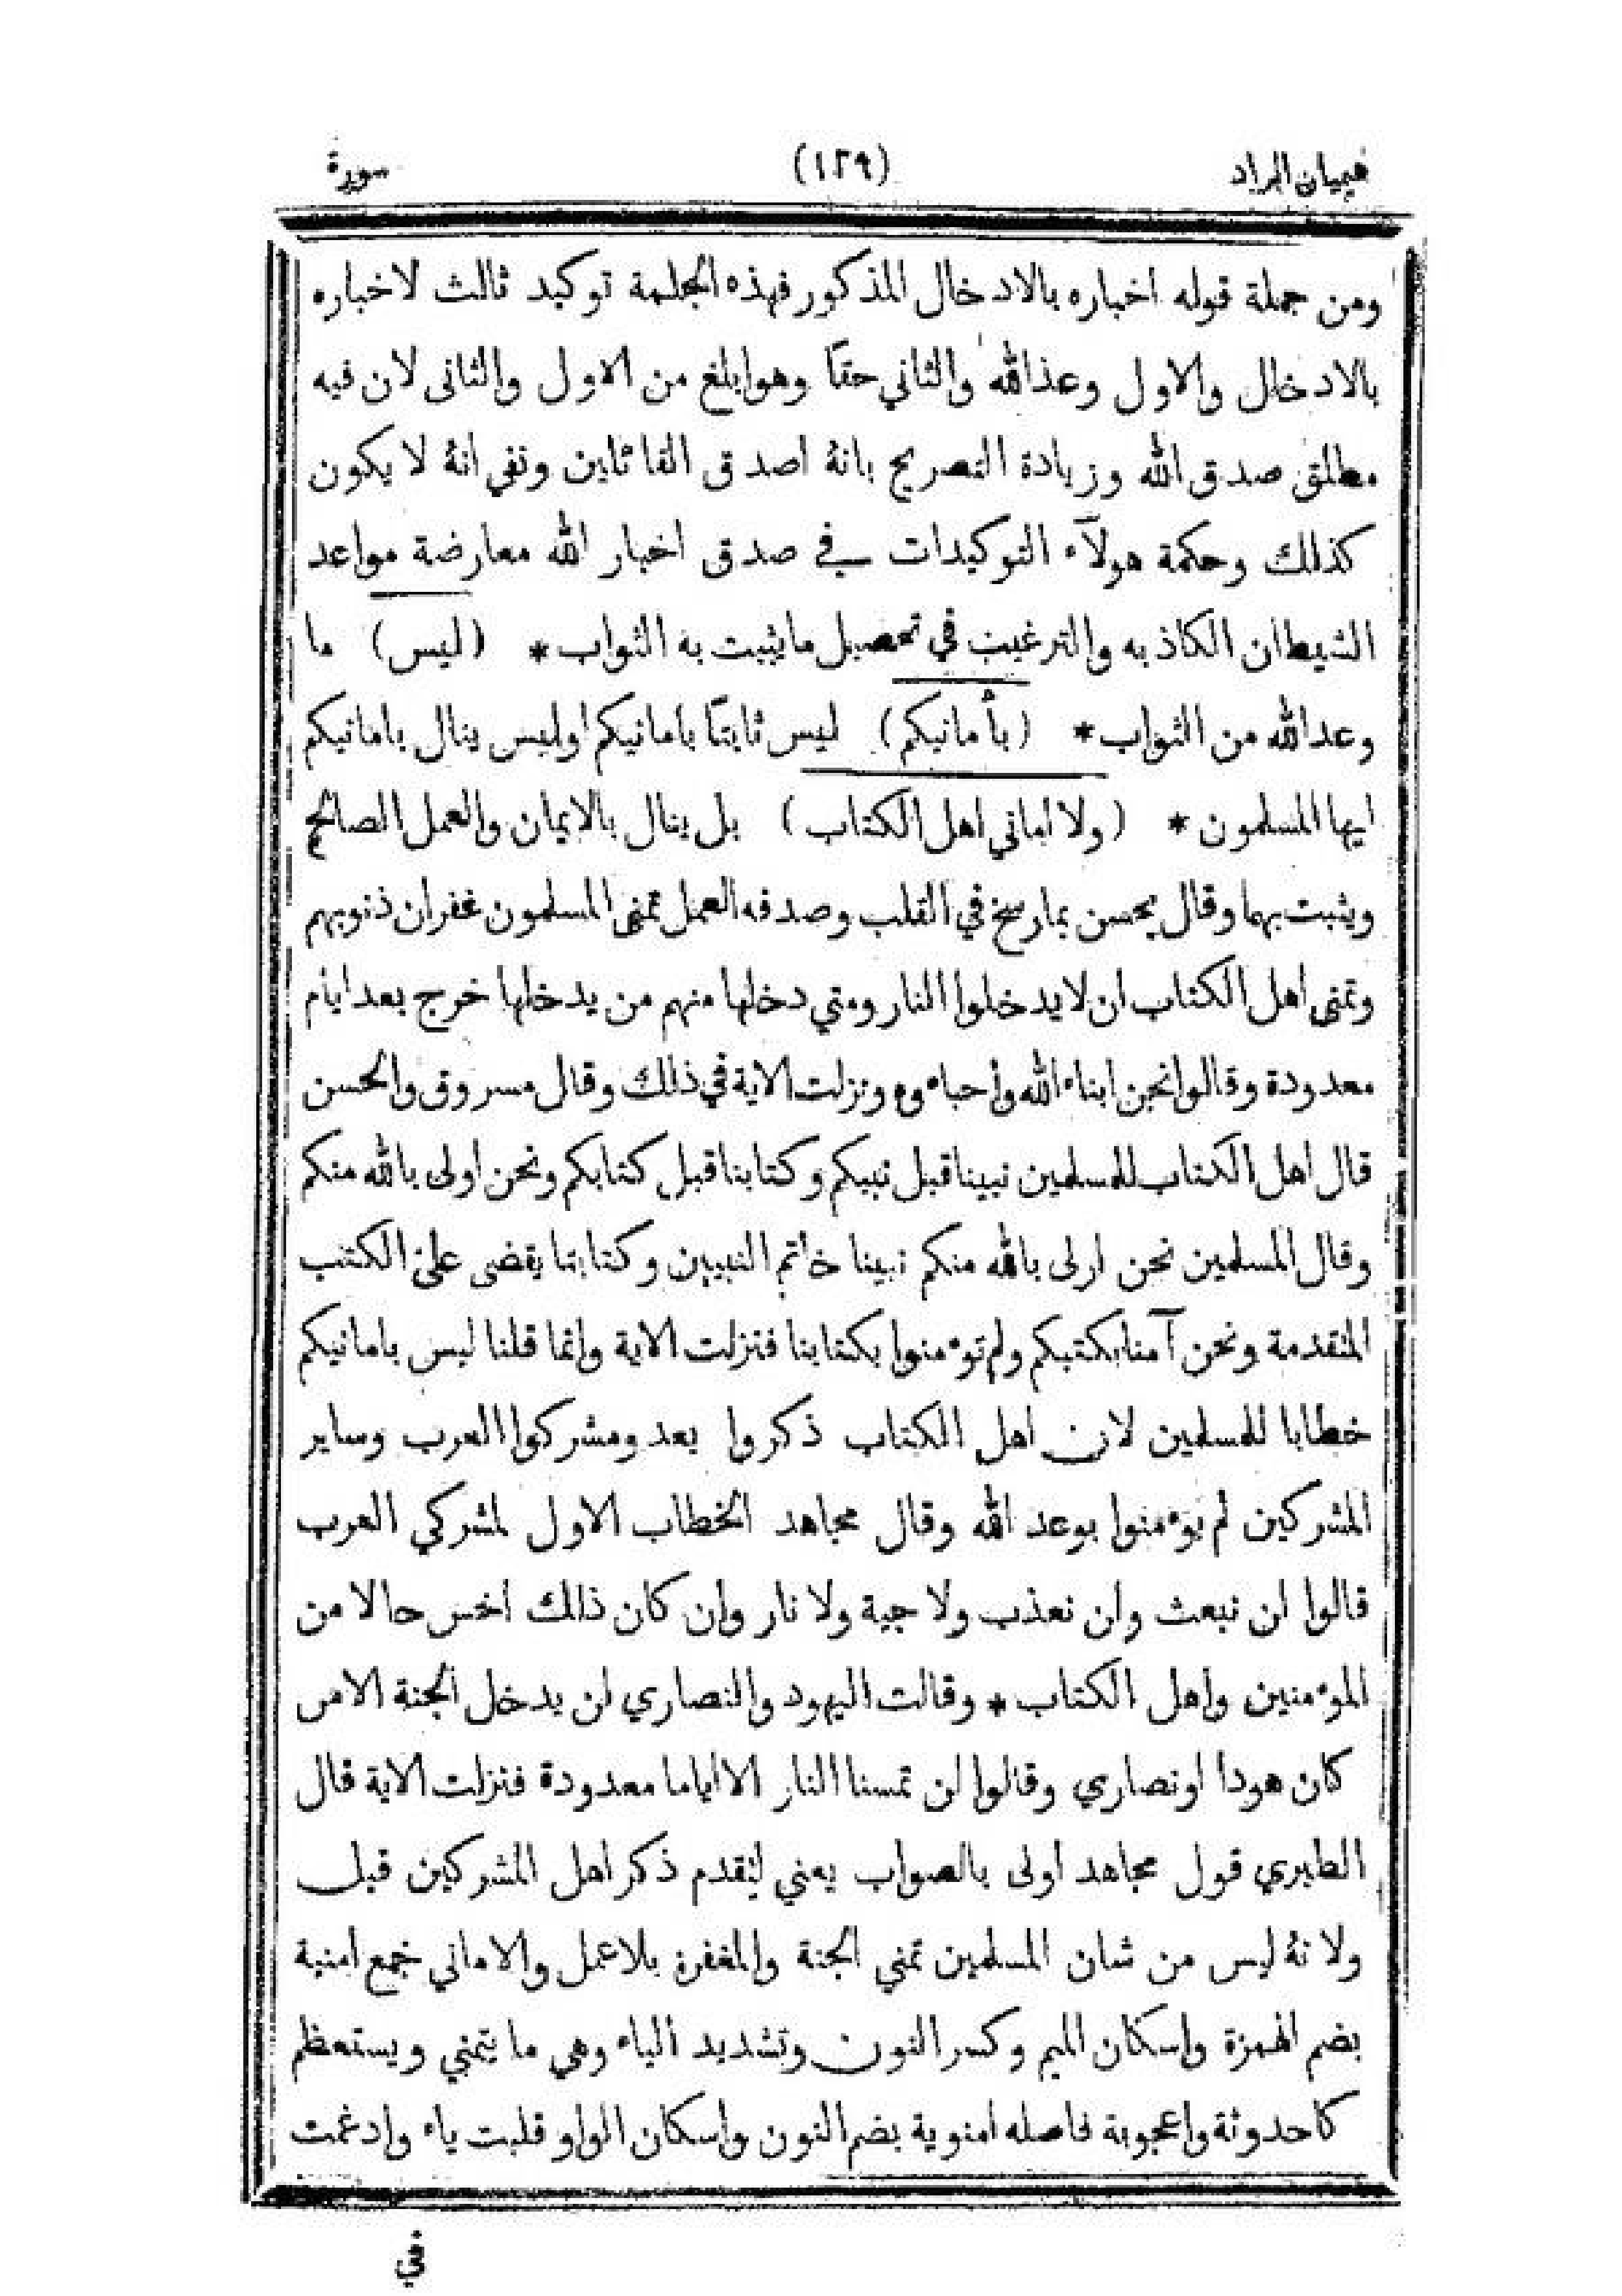 هيميان الزاد (١٢٩) سورة
ومن جملة قوله اخباره بالادخال المذكور فهذه الجملة توكيد ثالث لاخباره
بالادخال والاول وعد الله والثاني حقا وهو ابلغ من الاول والثانى لان فيه
مطلق صدق الله وزيادة التصريح بانه اصدق القائلين ونفي انه لا يكون
كذلك وحكمة هولآء التوكيدات في صدق اخبار الله معارضة مواعد
الشيطان الكاذبه والترغيب في تحصيل ما يثبت به الثواب * (ليس) ما
وعد الله من الثواب * (بأمانيكم) ليس ثابتا بامانيكم اوليس ينال بامانيكم
ايها المسلمون * (ولا اماني اهل الكتاب) بل ينال بالايمان والعمل الصالح
ويثبت بهما وقال يحسن بما رسخ في القلب وصدقه العمل تمنى المسلمون غفران ذنوبهم
وتمنى اهل الكتاب ان لا يدخلوا النار ومتي دخلها منهم من يدخلها خرج بعد ايام
معدودة وقالوا نحن ابناء الله وأحباءوه ونزلت الاية في ذلك وقال مسروق والحسن
قال اهل الكتاب للمسلمين نبينا قبل نبيكم وكتابنا قبل كتابكم ونحن اولى بالله منكم
وقال المسلمين نحن اولى بالله منكم نبينا خاتم النبيين وكتابنا يقضى على الكتب
المتقدمة ونحن آمنا بكتبكم ولم تؤمنوا بكتابنا فنزلت الاية وانما قلنا ليس بامانيكم
خطابا للمسلمين لان اهل الكتاب ذكروا بعد ومشركوا العرب وساير
المشركين لم يؤمنوا بوعد الله وقال مجاهد الخطاب الاول لمشركي العرب
قالوا لن نبعث ولن نعذب ولا جنة ولا نار وان كان ذلك اخس حالا من
المؤمنين واهل الكتاب * وقالت اليهود والنصاري لن يدخل الجنة الا من
كان هودا اونصاري وقالوا لن تمسنا النار الا اياما معدودة فنزلت الاية قال
الطبري قول مجاهد اولى بالصواب يعني لتقدم ذكر اهل المشركين قبل
ولانه ليس من شان المسلمين تمني الجنة والمغفرة بلا عمل والاماني جمع امنية
بضم الهمزة واسكان الميم وكسر النون وتشديد الياء وهي ما يتمني ويستعظم
كاحدوثة واعجوبة فاصله امنوية بضم النون واسكان الواو قلبت ياء وادغمت
في